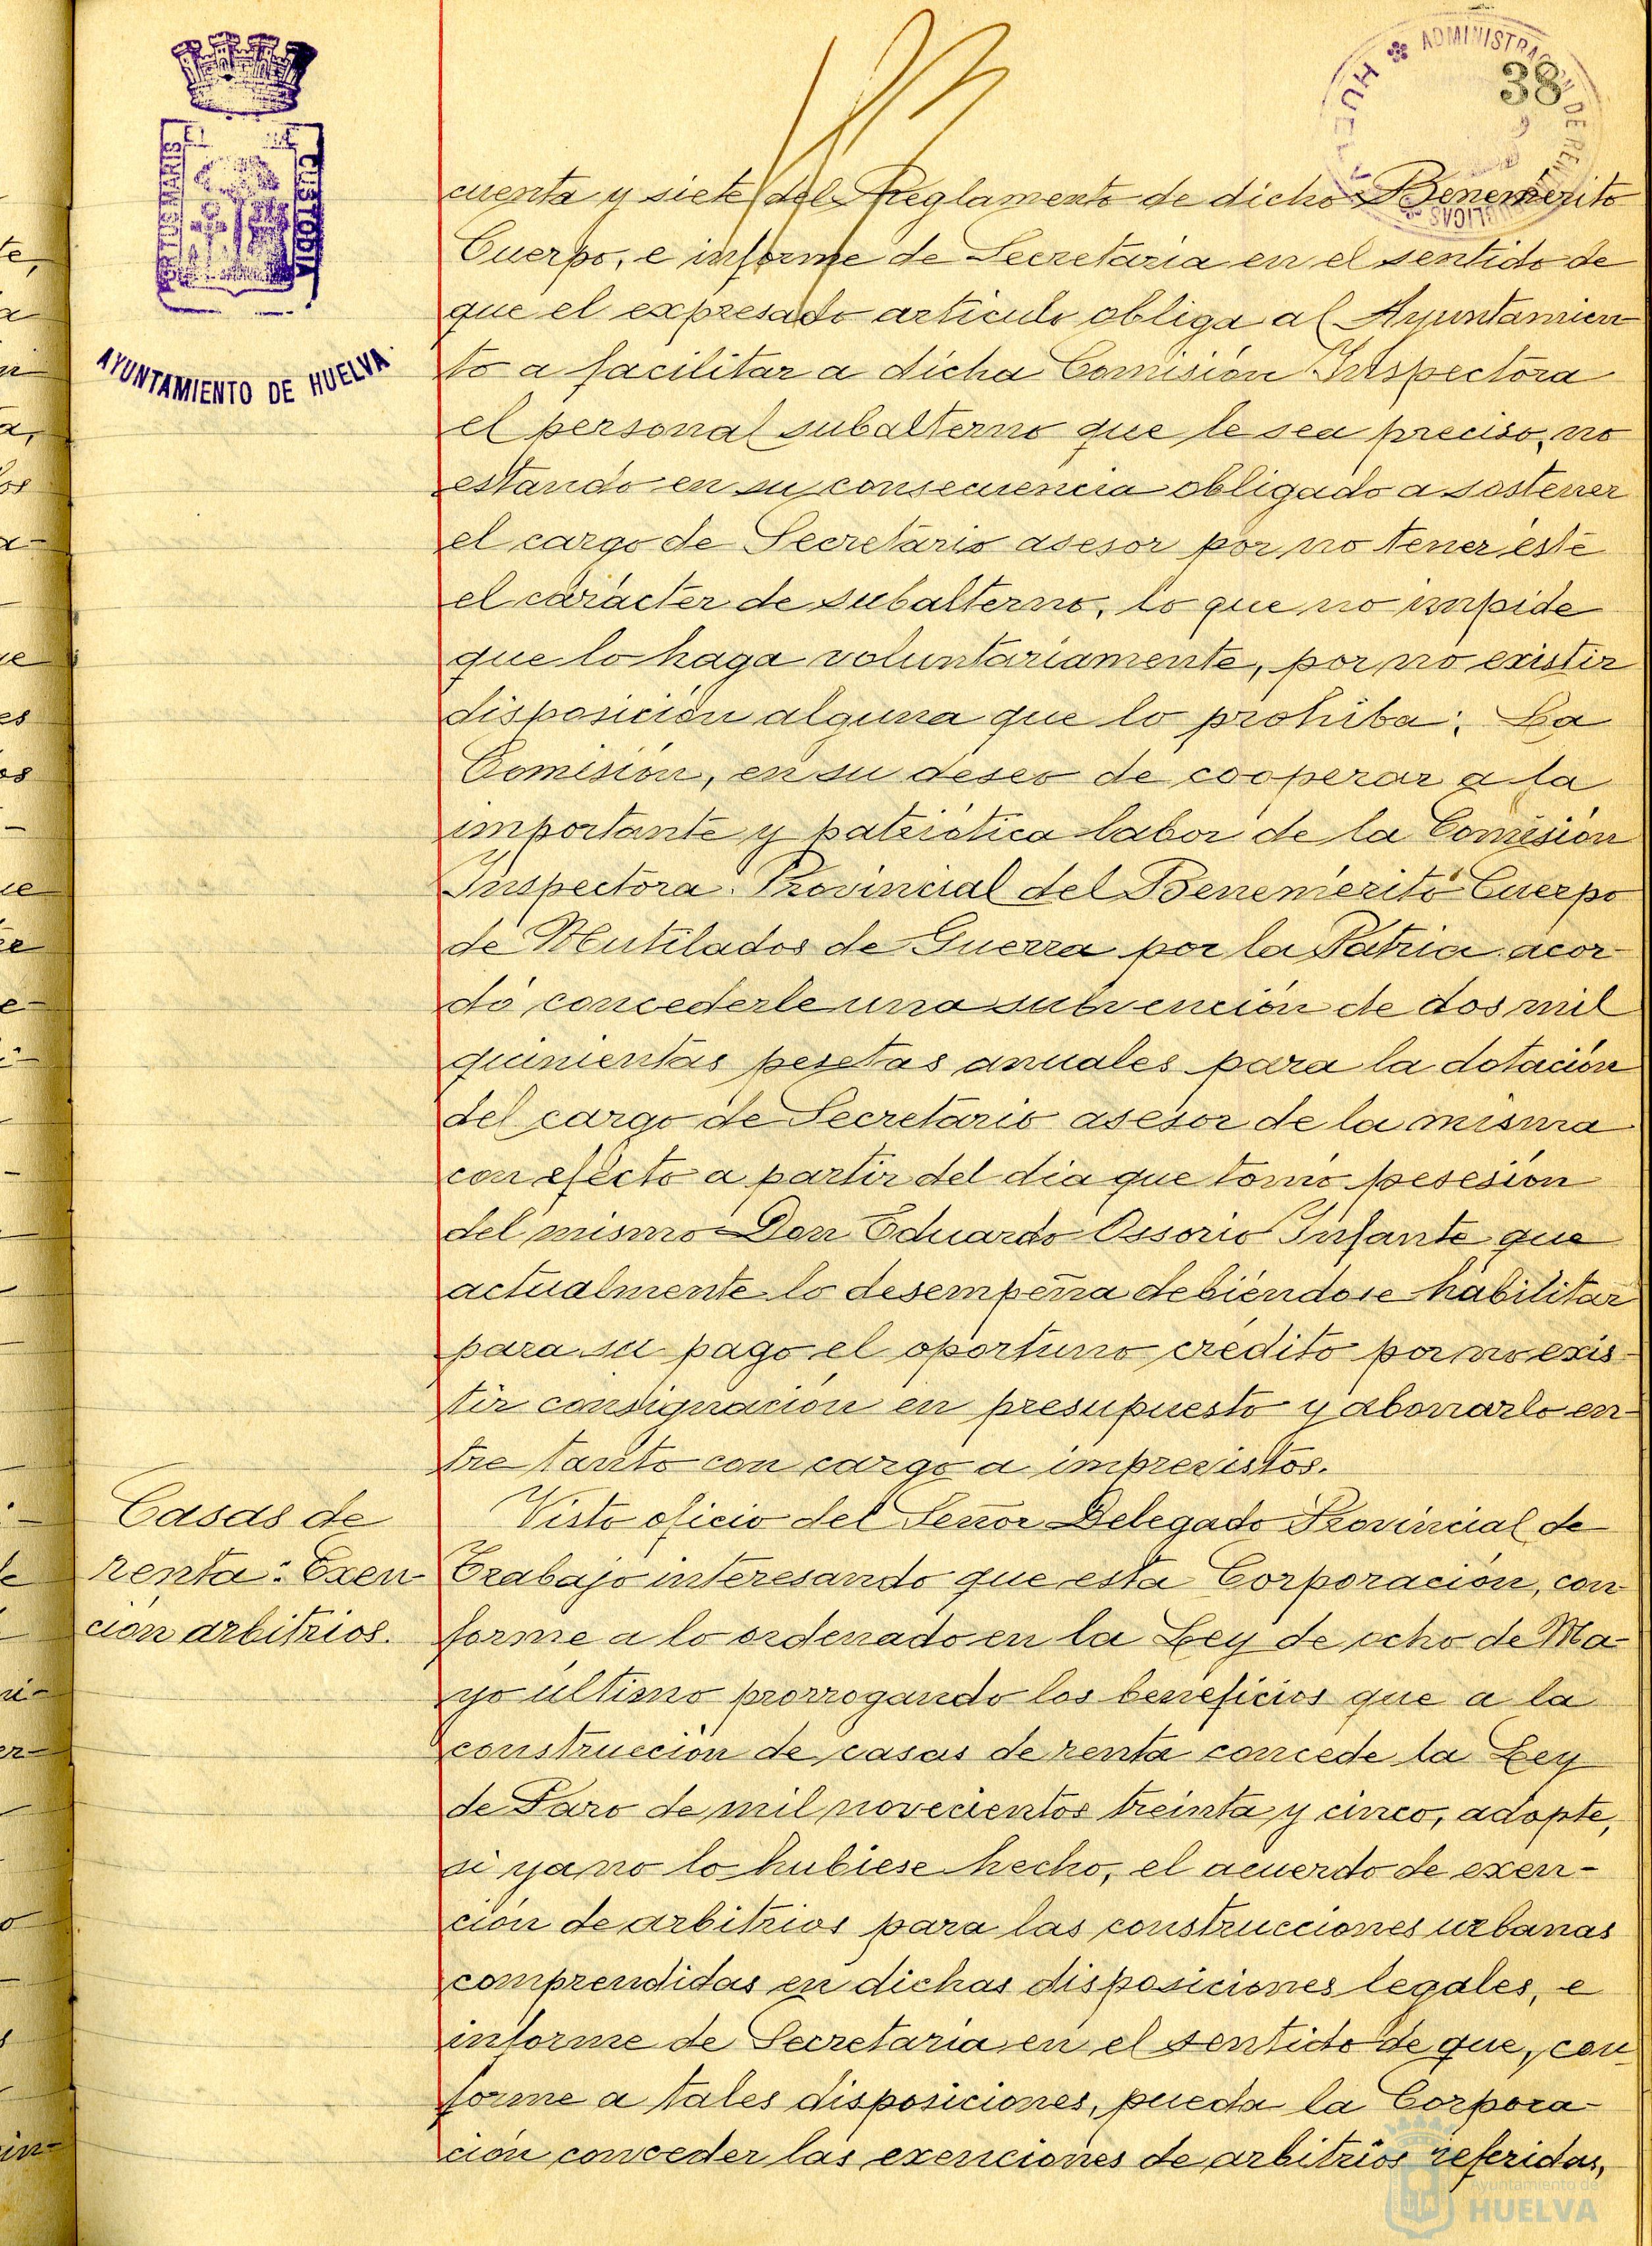 ADMINISTRACIÓN DE RENTAS
HUELVA
38
PORTUS MARIS ET CUSTODIA
AYUNTAMIENTO DE HUELVA
cuenta y siete del Reglamento de dicho Benemérito
Cuerpo, e informe de Secretaria en el sentido de
que el expresado articulo obliga al Ayuntamien
to a facilitar a dicha Comisión Inspectora
el personal subalterno que le sea preciso, no
estando en su consecuencia obligado a sostener
el cargo de Secretario asesor por no tener éste
el carácter de subalterno, lo que no impide
que lo haga voluntariamente, por no existir
disposición alguna que lo prohiba; La
Comisión, en su deseo de cooperar a la
importante y patriótica labor de la Comisión
Inspectora Provincial del Benemérito Cuerpo
de Mutilados de Guerra por la Patria acor-
dó concederle una subvención de dos mil
quinientas pesetas anuales para la dotación
del cargo de Secretario asesor de la misma
con efecto a partir del dia que tomó posesión
del mismo Don Eduardo Ossorio Infante que
actualmente lo desempeña debiéndose habilitar
para su pago el oportuno crédito por no exis-
tir consignación en presupuesto y abonarlo en-
tre tanto con cargo a imprevistos.
Casas de
renta: Exen-
ción arbitrios.
Visto oficio del Señor Delegado Provincial de
Trabajo interesando que esta Corporación, con-
forme a lo ordenado en la Ley de ocho de Ma-
yo último prorrogando los beneficios que a la
construcción de casas de renta concede la Ley
de Paro de mil novecientos treinta y cinco, adopte,
si ya no lo hubiese hecho, el acuerdo de exen-
ción de arbitrios para las construcciones urbanas
comprendidas en dichas disposiciones legales, e
informe de Secretaria en el sentido de que, con-
forme a tales disposiciones, pueda la Corpora-
ción conceder las exenciones de arbitrios referidas,
Ayuntamiento de
HUELVA